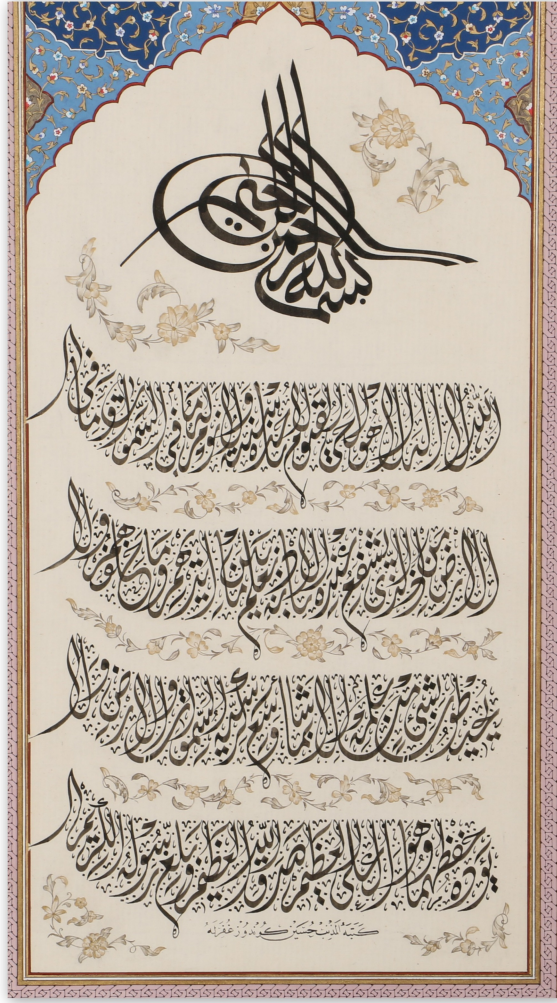 بسم الله الرحمن الرحيم
الله لا إله إلا هو الحي القيوم لا تأخذه سنة ولا نوم له ما في السموات وما في
الأرض من ذا الذي يشفع عنده إلا بإذنه يعلم ما بين أيديهم وما خلفهم ولا
يحيطون بشيء من علمه إلا بما شاء وسع كرسيه السموات والأرض ولا
يؤده حفظهما وهو العلي العظيم صدق الله العظيم وبلغ رسوله الكريم
كتبه المذنب حسين كوندوز غفر له